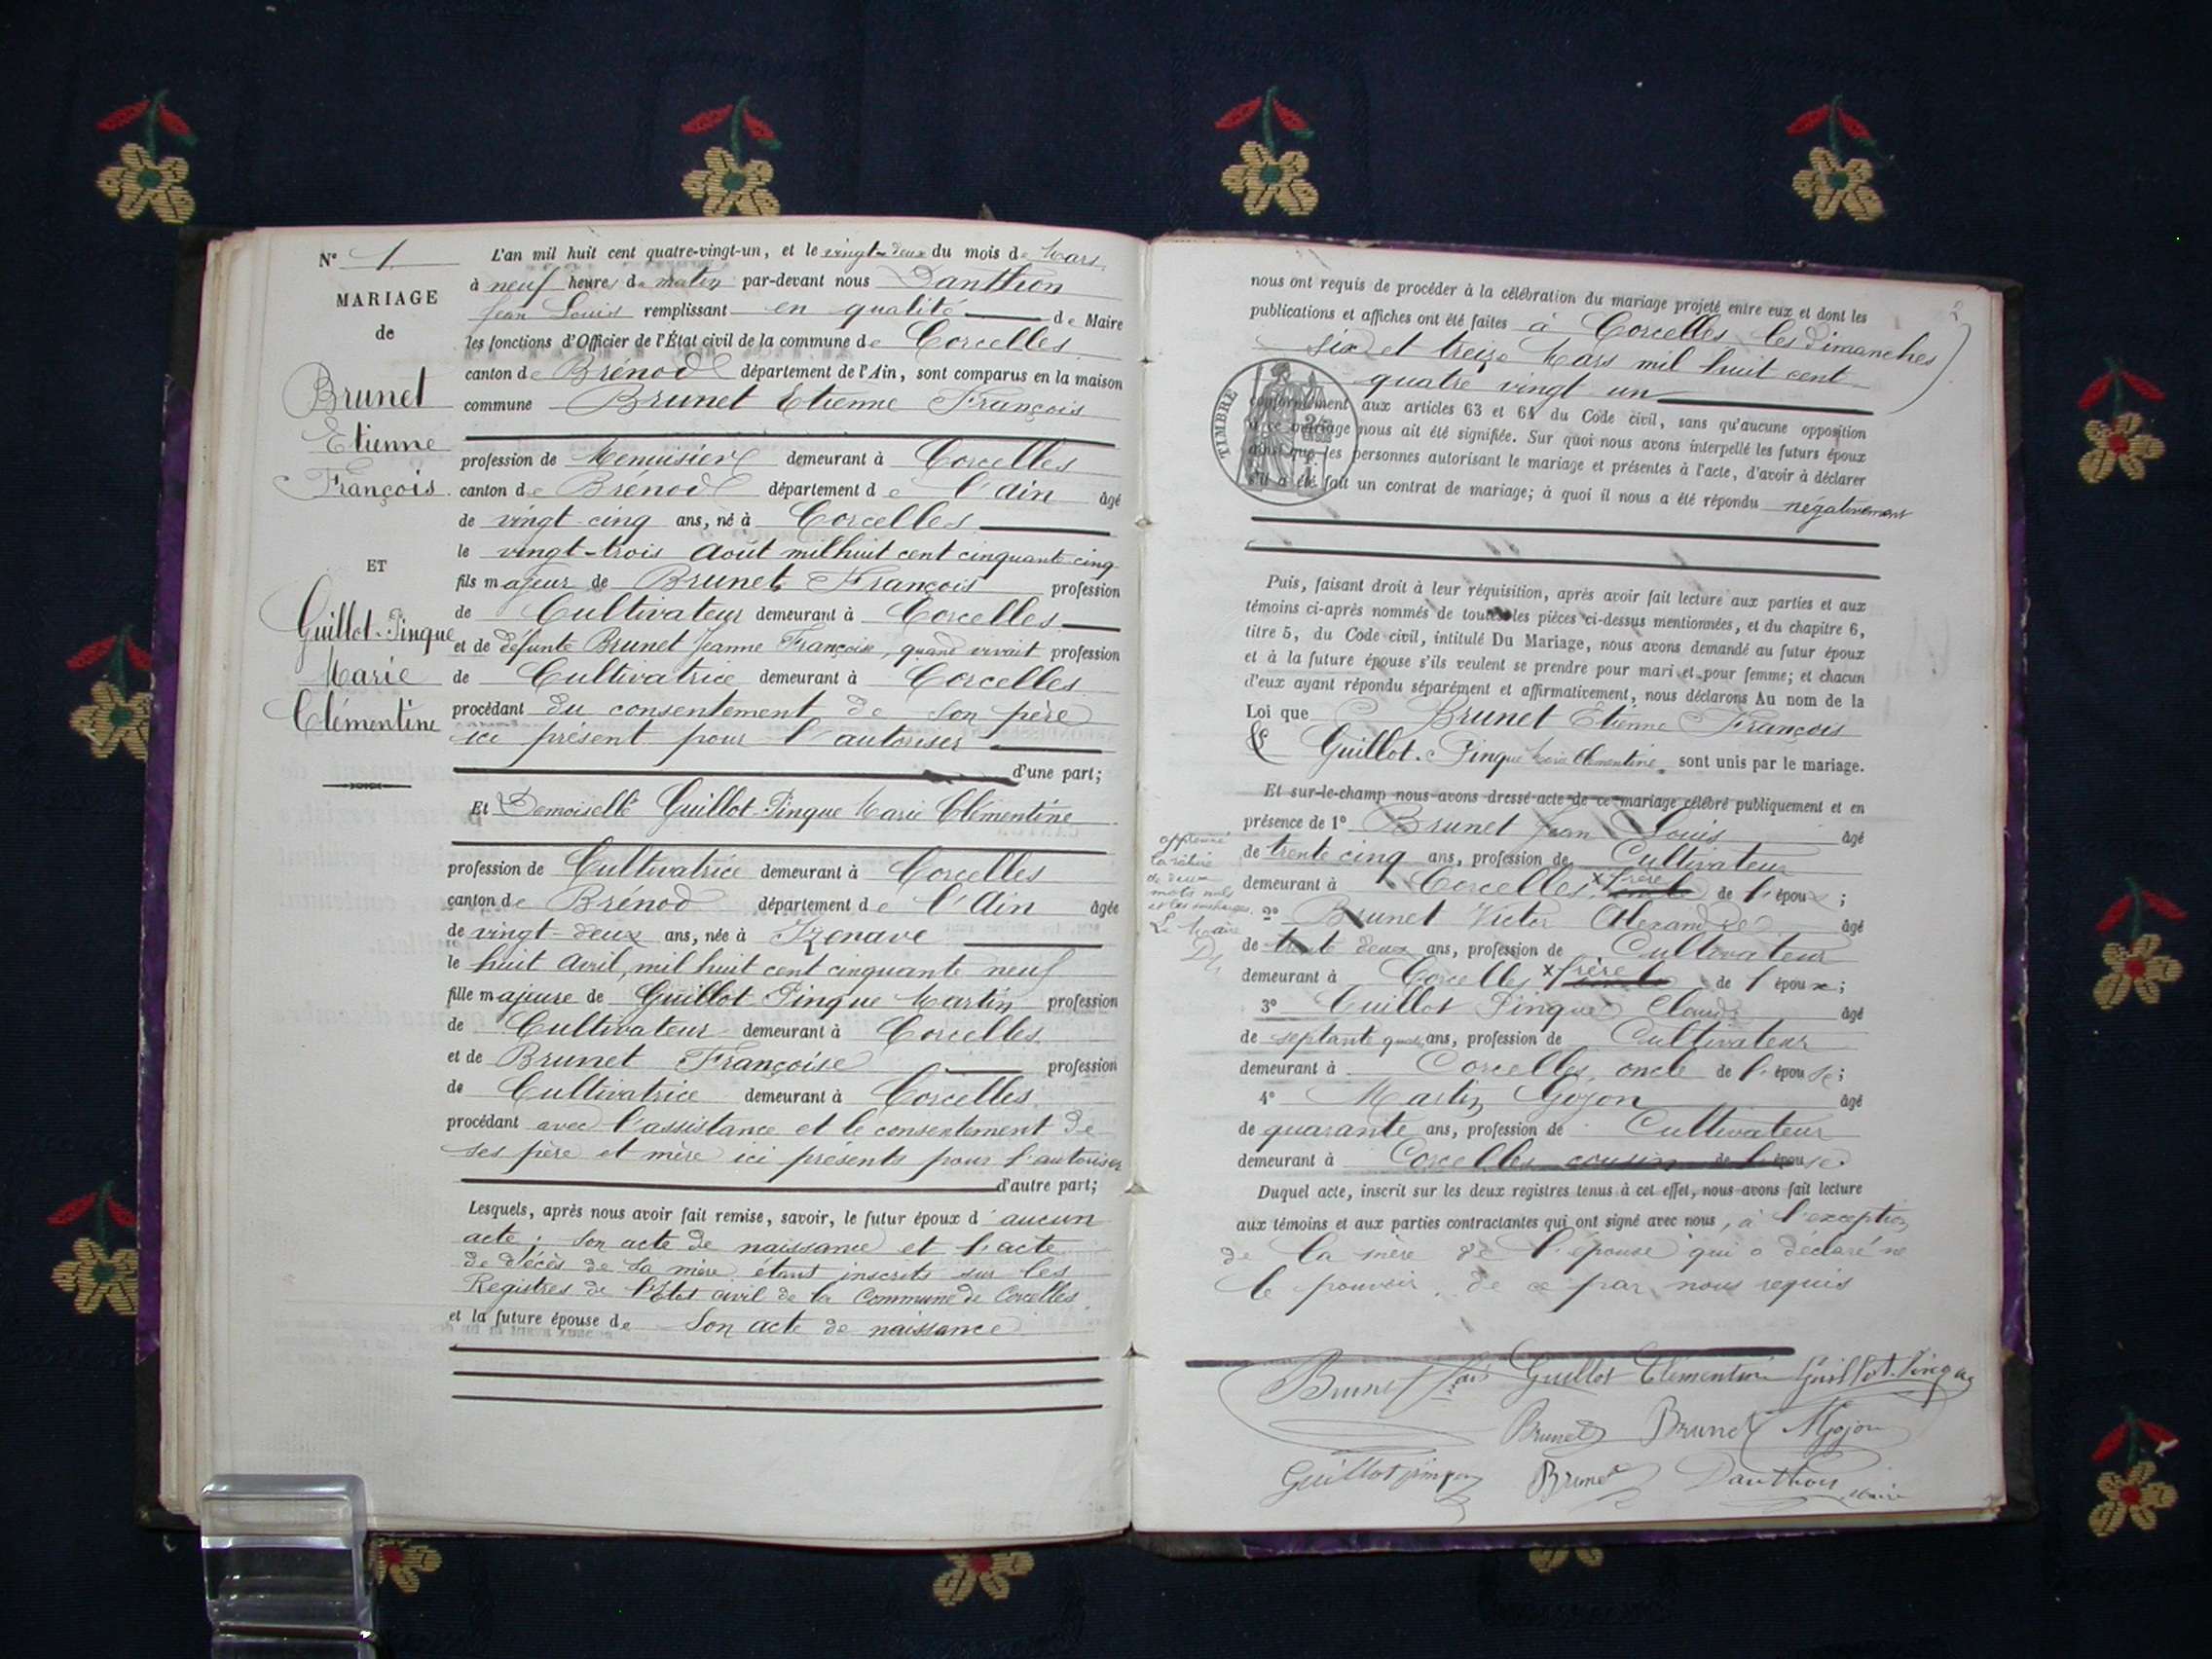 N° 1.
MARIAGE
de
Brunet
Etienne
François.
ET
Guillot-Pinque
Marie
Clémentine
L'an mil huit cent quatre-vingt-un, et le vingt-deux du mois de Mars
à neuf heures du matin par-devant nous Danthion
Jean Louis remplissant en qualité de Maire
les fonctions d'Officier de l'État civil de la commune de Corcelles
canton de Brénod département de l'Ain, sont comparus en la maison
commune Brunet Etienne François
profession de Menuisier demeurant à Corcelles
canton de Brénod département de l'Ain âgé
de vingt-cinq ans, né à Corcelles
le vingt-trois Août mil huit cent cinquante-cinq
fils majeur de Brunet François profession
de Cultivateur demeurant à Corcelles
et de défunte Brunet Jeanne Françoise, quand vivait profession
de Cultivatrice demeurant à Corcelles
procédant du consentement de son père
ici présent pour l'autoriser
d'une part;
Et Demoiselle Guillot-Pinque Marie Clémentine
profession de Cultivatrice demeurant à Corcelles
canton de Brénod département de l'Ain âgée
de vingt-deux ans, née à Izenave
le huit Avril, mil huit cent cinquante neuf
fille majeure de Guillot-Pinque Martin profession
de Cultivateur demeurant à Corcelles
et de Brunet Françoise profession
de Cultivatrice demeurant à Corcelles
procédant avec l'assistance et le consentement de
ses père et mère ici présents pour l'autoriser
d'autre part;
Lesquels, après nous avoir fait remise, savoir, le futur époux d'aucun
acte; son acte de naissance et l'acte
de décès de sa mère étant inscrits sur les
Registres de l'Etat civil de la Commune de Corcelles
et la future épouse de son acte de naissance
2
nous ont requis de procéder à la célébration du mariage projeté entre eux et dont les
publications et affiches ont été faites à Corcelles les dimanches
six et treize Mars mil huit cent
quatre vingt un
TIMBRE
conformément aux articles 63 et 64 du Code civil, sans qu'aucune opposition
à ce mariage nous ait été signifiée. Sur quoi nous avons interpellé les futurs époux
ainsi que les personnes autorisant le mariage et présentes à l'acte, d'avoir à déclarer
s'il a été fait un contrat de mariage; à quoi il nous a été répondu négativement
Puis, faisant droit à leur réquisition, après avoir fait lecture aux parties et aux
témoins ci-après nommés de toutes les pièces ci-dessus mentionnées, et du chapitre 6,
titre 5, du Code civil, intitulé Du Mariage, nous avons demandé au futur époux
et à la future épouse s'ils veulent se prendre pour mari et pour femme; et chacun
d'eux ayant répondu séparément et affirmativement, nous déclarons Au nom de la
Loi que Brunet Étienne François
& Guillot-Pinque Marie Clémentine, sont unis par le mariage.
Et sur-le-champ nous avons dressé acte de ce mariage célébré publiquement et en
présence de 1° Brunet Jean Louis âgé
de trente cinq ans, profession de Cultivateur
demeurant à Corcelles, x frère de l'époux;
2° Brunet Victor Alexandre âgé
de trente deux ans, profession de Cultivateur
demeurant à Corcelles x frère de l'époux;
3° Guillot Pinque Claude âgé
de septante quatre ans, profession de Cultivateur
demeurant à Corcelles, oncle de l'épouse;
4° Martin Gojon âgé
de quarante ans, profession de Cultivateur
demeurant à Corcelles cousin de l'épouse
approuvé
la rature
de deux
mots nuls
et les surcharges.
Le Maire
Duquel acte, inscrit sur les deux registres tenus à cet effet, nous avons fait lecture
aux témoins et aux parties contractantes qui ont signé avec nous, à l'exception
de la mère de l'épouse qui a déclaré ne
le pouvoir, de ce par nous requis
Brunet Guillot Clémentine Guillot-Pinque
Brunet Brunet MGojon
Guillot pinque Brunet Danthion Maire